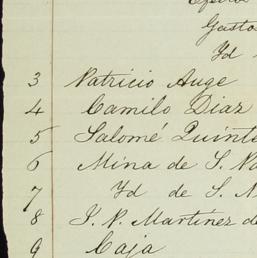 Gastos
Yd
3 Patricio Auge
4 Camilo Diaz
5 Salomé Quinte
6 Mina de S. N
7 Yd de S. N
8 J. P. Martinez de
9 Caja